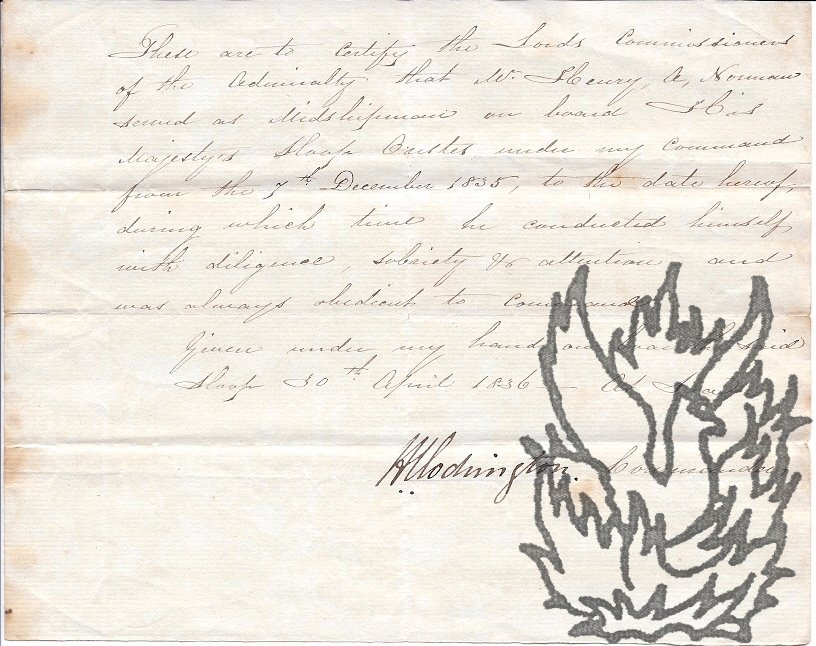 These are to certify the Lords Commissioners
of the Admiralty that Mr. Henry, A, Norman
served as Midshipman on board His
Majestys Sloop Orestes under my command
from the 7th December 1835, to the date hereof,
during which time he conducted himself
with diligence, sobriety & attention and
was always obedient to command
Given under my hand on board the said
Sloop 30th April 1836 — At
HJCodrington. Commander